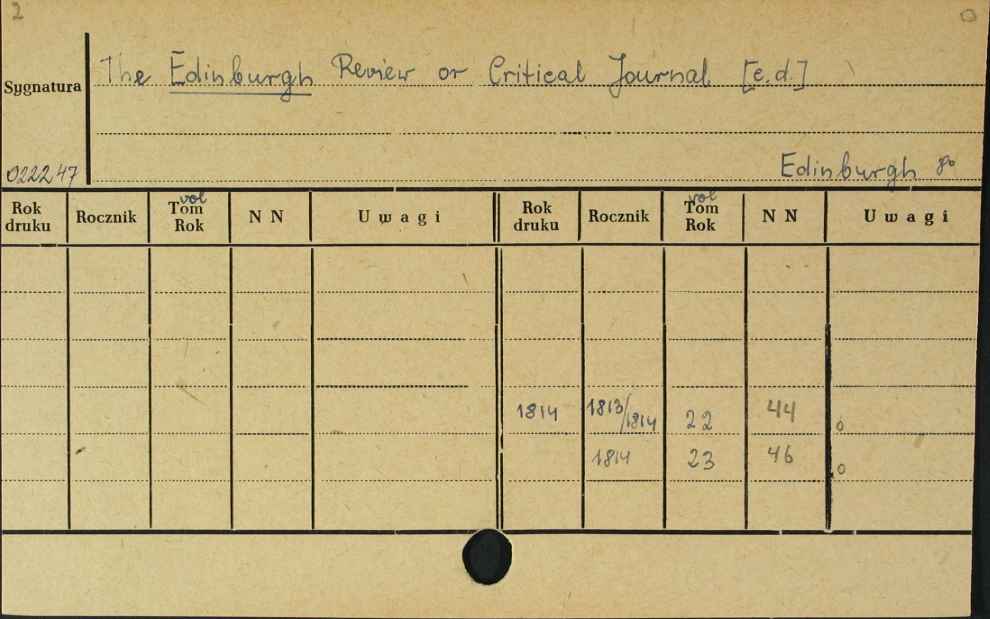 2
The Edinburgh Review or Critical Journal [c.d.]
Sygnatura
022247
Edinburgh 8o
Rok druku Rocznik vol Tom Rok N N Uwagi Rok druku Rocznik vol Tom Rok N N Uwagi
1814 1813/1814 22 44 o
1814 23 46 o